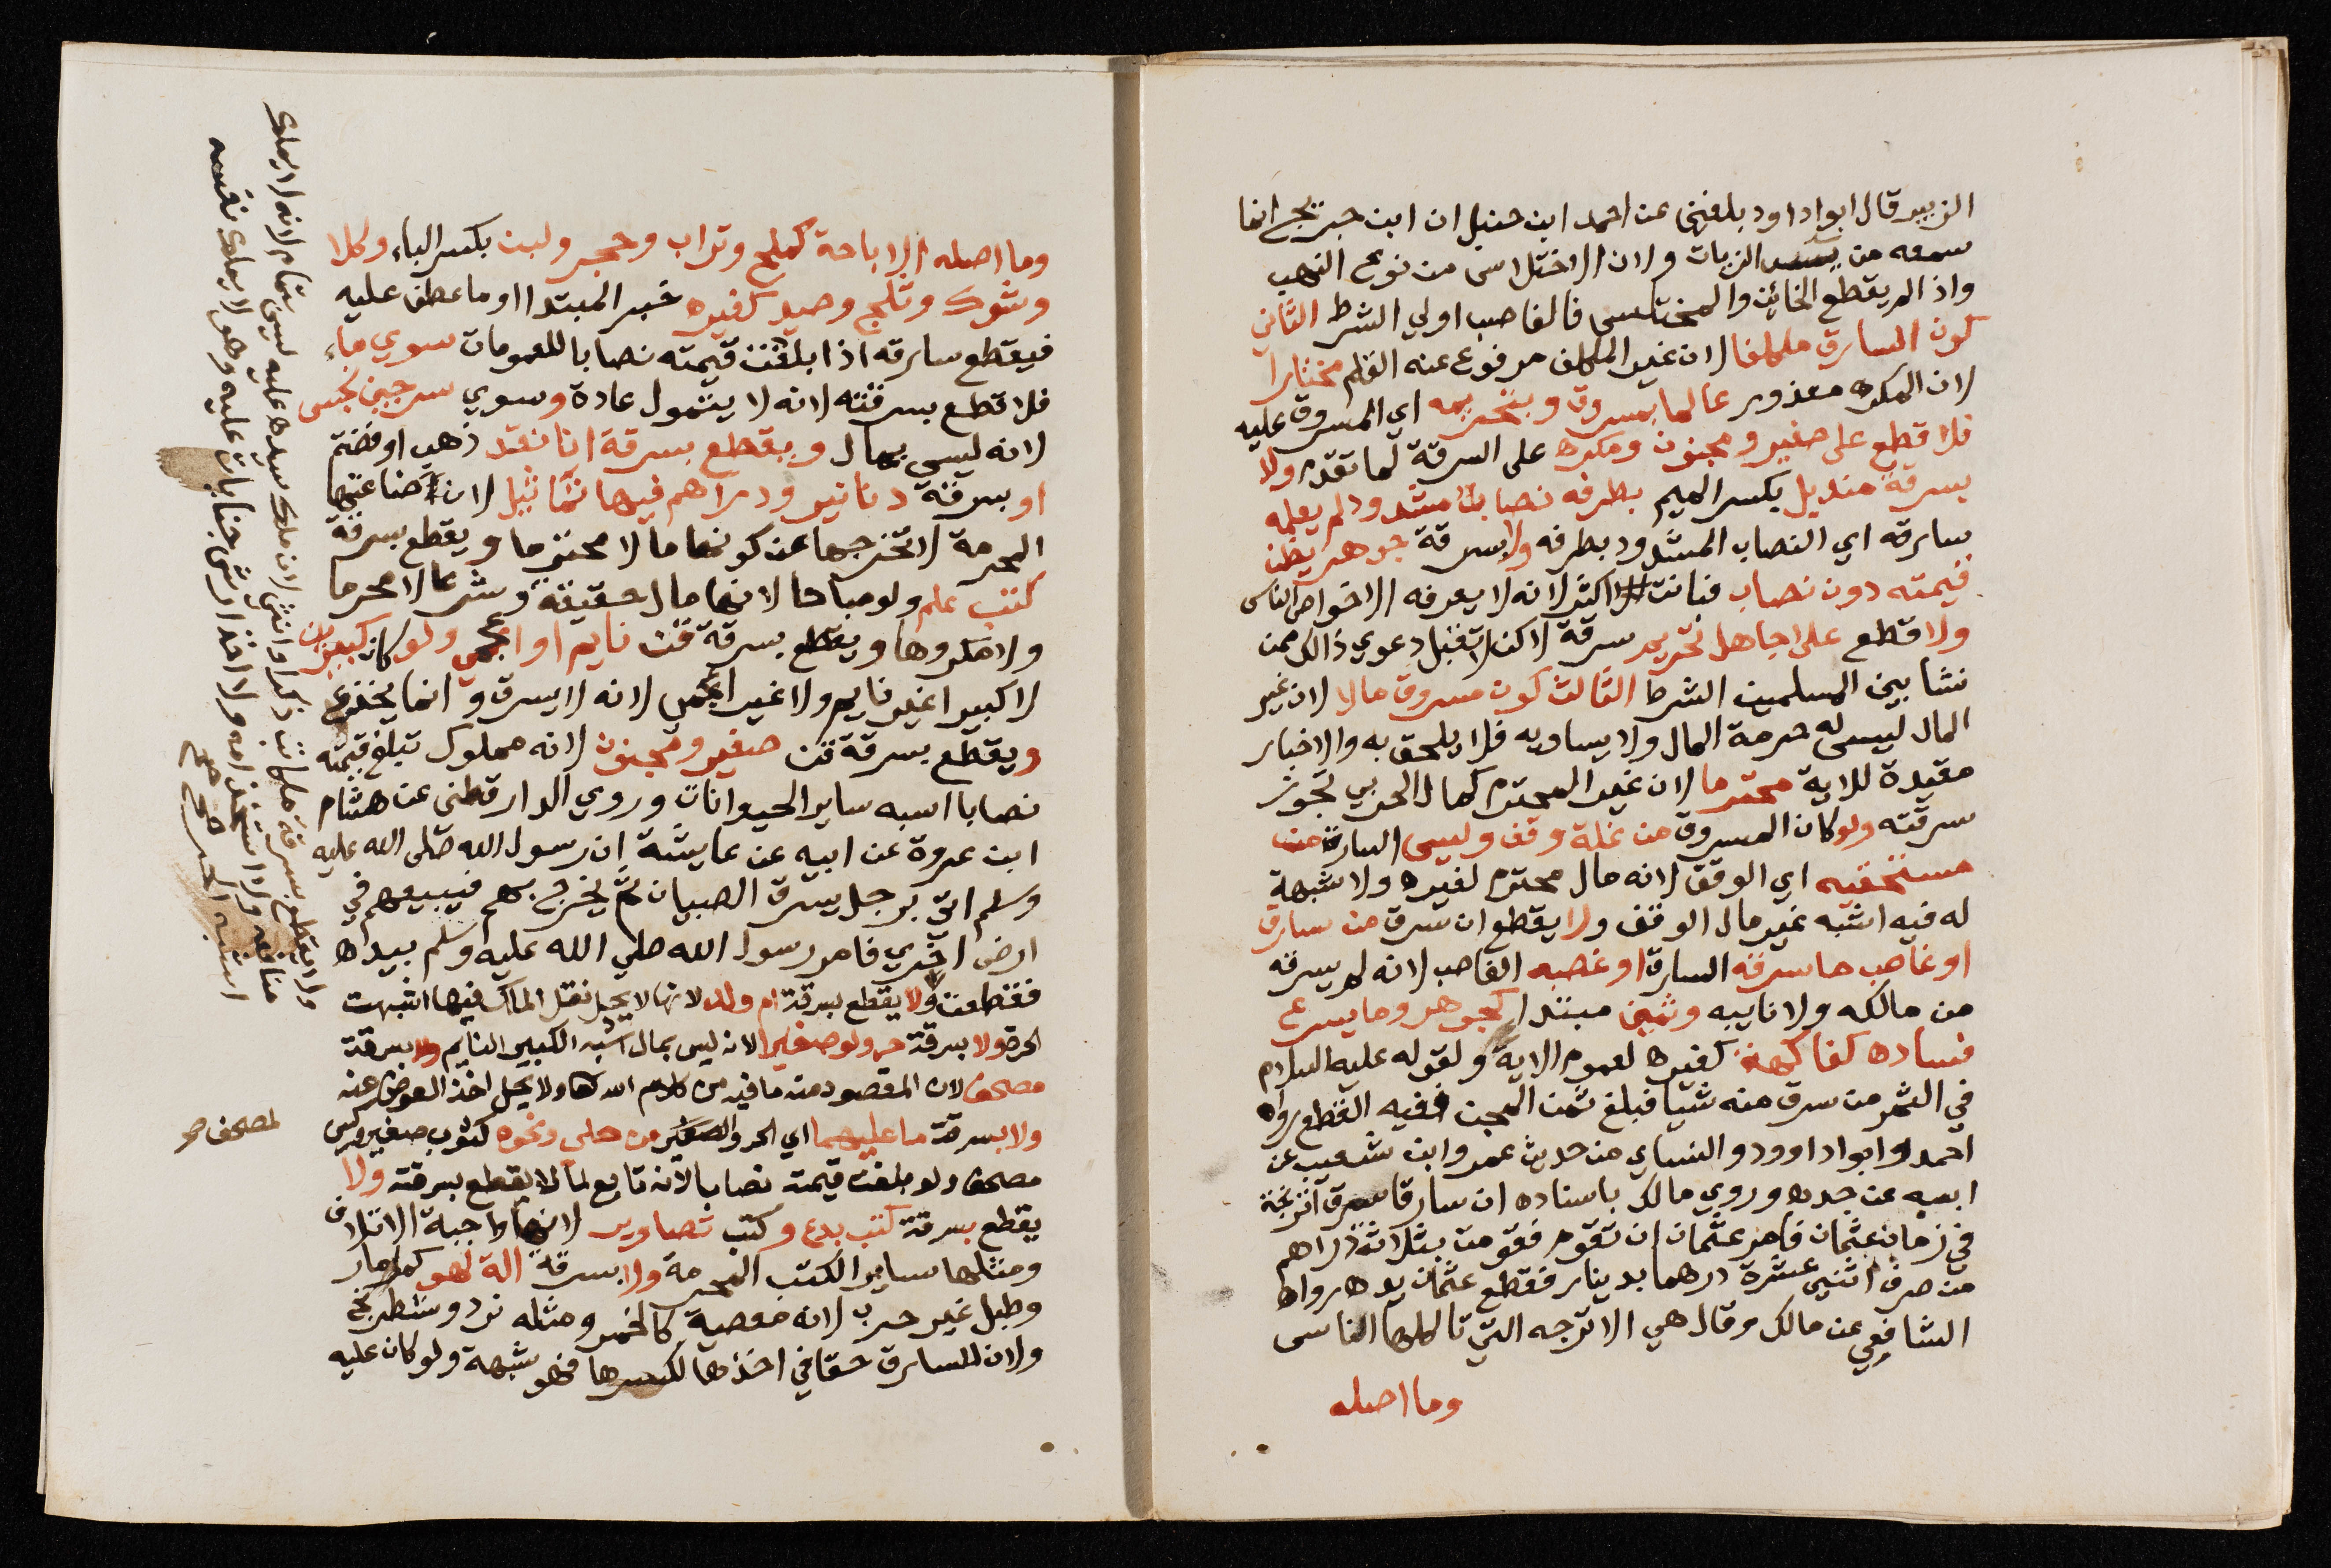 الزبير قال ابواداود بلغني عن احمد ابن حنبل ان ابن جريج انما
سمعه من يسد الزيات ولان الاختلاس من نوع النهب
واذ الم يقطع الخائن والمختلس فالغاصب اولي الشرط الثاني
كون السارق مكلفا لان غير المكلف مرفوع عنه القلم مختارا
لان المكره معذور عالما بمسروق وبتحريمه اي المسروق عليه
فلا قطع على صغير ومجنون ومكره على السرقة لما تقدم ولا
بسرقة منديل بكسر الميم بطرفه نصاب مشدود لم يعلمه
سارقه اي النصاب المشدود بطرفه ولا بسرقة جوهر يظن
قيمته دون نصاب فبانت اكثر لانه لا يعرفه الا خواص الناس
ولا قطع على جاهل تحريم سرقة لاكن لا تقبل دعوي ذالك ممن
نشا بين المسلمين الشرط الثالث كون مسروق مالا لان غير
المال ليس له حرمة المال ولا يساويه فلا يلحق به والاخبار
مقيدة للاية محترما لان غير المحترم كمال الحربي تجوز
سرقته ولو كان المسروق من غلة وقف وليس السارق من
مستحقيه اي الوقف لانه مال محترم لغيره ولا شبهة
له فيه اشبه غير مال الوقف ولا يقطع ان سرق من سارق
او غاصب ما سرقه السارق او غصبه الغاصب لانه لم يسرقه
من مالكه ولا نايبه وثمين مبتدا كجوهر وما يسرع
فساده كفاكهة كغيره لعموم الاية ولقوله عليه السلام
في الثمر من سرق منه شيئا فبلغ ثمن المجن ففيه القطع رواه
احمد وابواد اوود والنساي من حديث عمرو ابن شعيب عن
ابيه عن جده وروي مالك باسناده ان سارقا سرق اترنجة
في زمان عثمان فامر عثمان ان تقوم فقومت بثلاثة دراهم
من صرف اثني عشرة درهما بدينار فقطع عثمان يده رواه
الشافعي عن مالك وقال هي الاترجه التي تاكلها الناس
وما اصله
وما اصله الاباحة كملح وتراب وحجر ولبن بكسر الباء وكلا
وشوك وثلج وصيد كغيره خبر المبتدا او ما عطف عليه
فيقطع سارقه اذا بلغت قيمته نصابا للعمومات سوي ماء
فلا قطع بسرقته لانه لا يتمول عادة وسوي سرجين نجس
لانه ليس بمال ويقطع بسرقة انا نقد ذهب او فضة
او بسرقة دنانير ودراهم فيها تماثيل لان صناعتها
المحرمة لا تخرجها عن كونها مالا محترما ويقطع بسرقة
كتب علم ولو مباحا لانها مال حقيقة وشرعا لا محرما
ولا مكروها ويقطع بسرقة قن نايم او اعجمي ولو كان كبيرين
لا كبير اغير نايم ولا غير اعجمي لانه لا يسرق وانما يخدع
ويقطع بسرقة قن صغير ومجنون لانه مملوك تبلغ قيمته
نصابا اسبه ساير الحيوانات وروي الدارقطني عن هشام
ابن عروة عن ابيه عن عايشة ان رسول الله صلى الله عليه
وسلم اتي برجل يسرق الصبيان ثم يخرج بهم فيبيعهم في
ارض اخري فامر رسول الله صلي الله عليه وسلم بيده
فقطعت ولا يقطع بسرقة ام ولد لانها لا يحل نقل الملك فيها اشبهت
الحرة ولا بسرقة حر ولو صغيرا لانه ليس بمال اشبه الكبير النايم ولا بسرقة
مصحف لان المقصود منه ما فيه من كلام الله تعالى ولا يحل اخذ العوض عنه
ولا بسرقة ما عليهما اي الحر والصغير من حلي ونحوه كثوب صغير وكيس
مصحف ولو بلغت قيمته نصابا لانه تابع لما لا يقطع بسرقته ولا
يقطع بسرقة كتب بدع وكتب تصاوير لانها واجبة الاتلاف
ومثلها ساير الكتب المحرمة ولا بسرقة الة لهو كمزمار
وطبل غير حرب لانه معصية كالخمر ومثله نرد وشطرنج
ولان للسارق حقا في اخذها لكسرها فهو شبهة ولو كان عليه
ولا يقطع بسرقة مكاتب ذكرا وانثى لان ملك سيده عليه ليس بتمام لانه لا يملك
منافعه ولا استخدامه ولا اخذ ارش جناية عليه وهو لا يملك نفسه
اشبه الحر صح صح
لمصحف صح